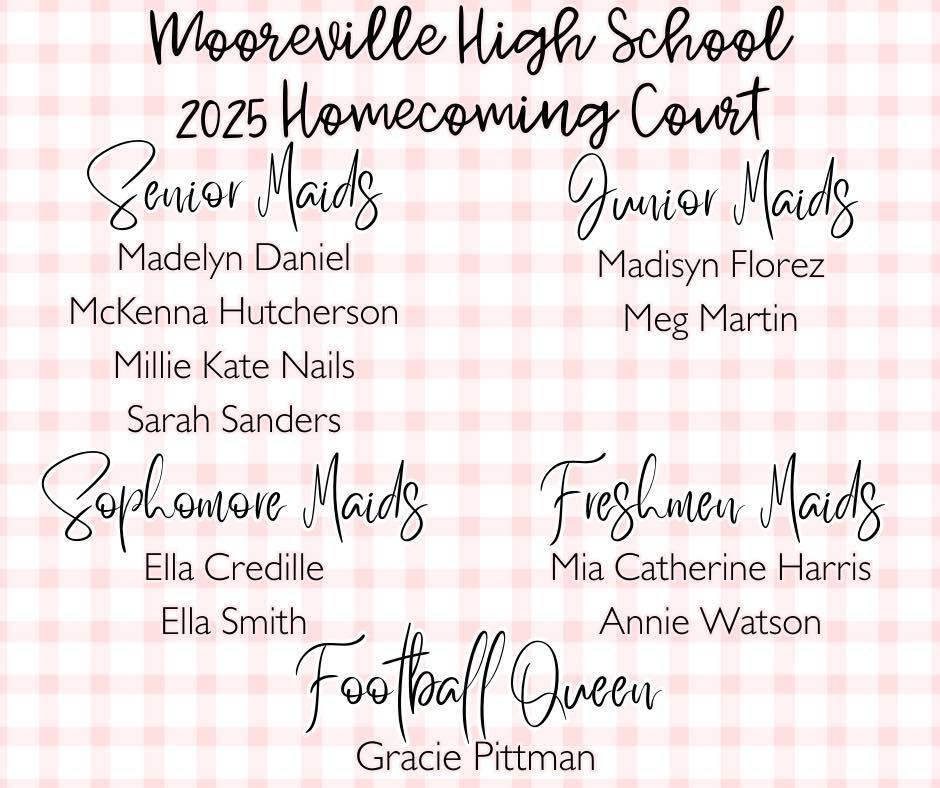 Mooreville High School
2025 Homecoming Court
Senior Maids
Madelyn Daniel
McKenna Hutcherson
Millie Kate Nails
Sarah Sanders
Junior Maids
Madisyn Florez
Meg Martin
Sophomore Maids
Ella Credille
Ella Smith
Freshmen Maids
Mia Catherine Harris
Annie Watson
Football Queen
Gracie Pittman